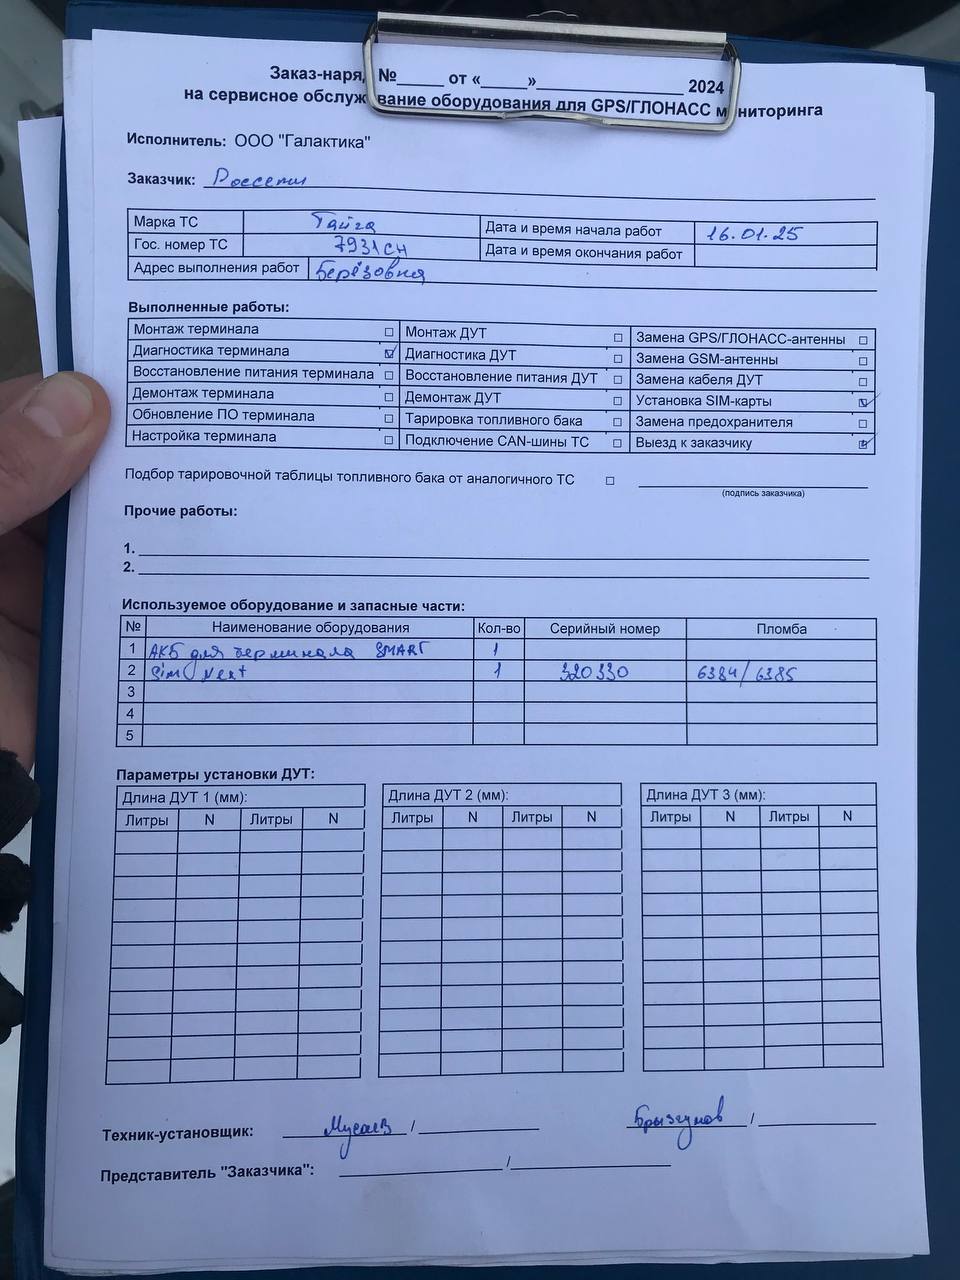 Заказ-наряд №_____ от «_____»________________ 2024
на сервисное обслуживание оборудования для GPS/ГЛОНАСС мониторинга
Исполнитель: ООО "Галактика"
Заказчик: Россети
Марка ТС Тайга Дата и время начала работ 16.01.25
Гос. номер ТС 7931СН Дата и время окончания работ
Адрес выполнения работ Берёзовка
Выполненные работы:
Монтаж терминала ☐ Монтаж ДУТ ☐ Замена GPS/ГЛОНАСС-антенны ☐
Диагностика терминала ☑ Диагностика ДУТ ☐ Замена GSM-антенны ☐
Восстановление питания терминала ☐ Восстановление питания ДУТ ☐ Замена кабеля ДУТ ☐
Демонтаж терминала ☐ Демонтаж ДУТ ☐ Установка SIM-карты ☑
Обновление ПО терминала ☐ Тарировка топливного бака ☐ Замена предохранителя ☐
Настройка терминала ☐ Подключение CAN-шины ТС ☐ Выезд к заказчику ☑
Подбор тарировочной таблицы топливного бака от аналогичного ТС ☐
(подпись заказчика)
Прочие работы:
1.
2.
Используемое оборудование и запасные части:
№ Наименование оборудования Кол-во Серийный номер Пломба
1 АКБ для терминала SMART 1
2 Sim Next 1 320330 6384/6385
3
4
5
Параметры установки ДУТ:
Длина ДУТ 1 (мм): Длина ДУТ 2 (мм): Длина ДУТ 3 (мм):
Литры N Литры N Литры N Литры N Литры N Литры N
Техник-установщик: Мусаев / Брызгунов /
Представитель "Заказчика": /